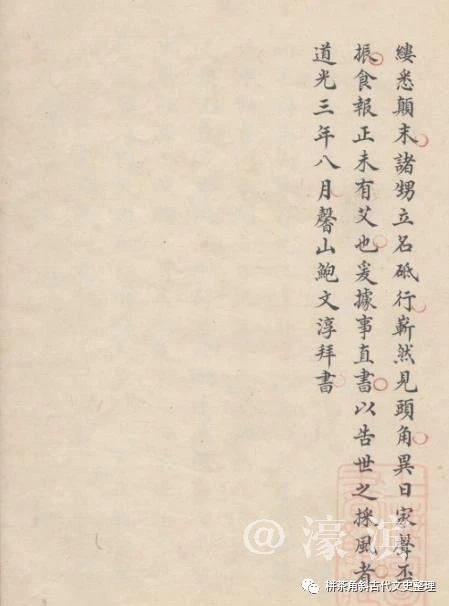 縷悉顛末諸甥立名砥行嶄然見頭角異日家聲丕
振食報正未有艾也爰據事直書以告世之採風者
道光三年八月馨山鮑文淳拜書
@濠濱
栟茶角斜古代文史整理